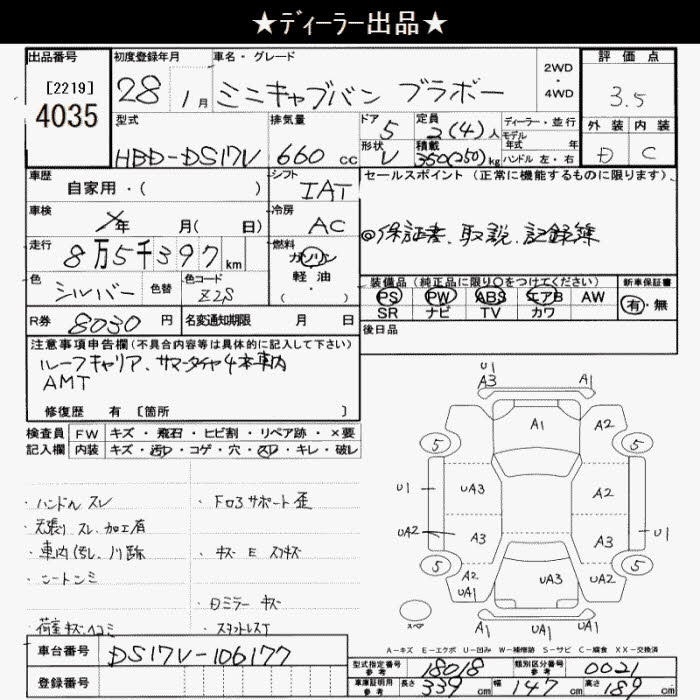 ★ディーラー出品★
出品番号 初度登録年月 車名・グレード 評価点
[2219] 28 1月 ミニキャブバン ブラボー 2WD ・ 4WD 3.5
4035
型式 排気量 ドア 5 定員 2(4)人 ディーラー・並行 外装 内装
HBD-DS17V 660 cc 形状 V 積載 350(250)kg モデル年式 年 ハンドル 左・右 D C
車歴 自家用・( ) シフト IAT セールスポイント (正常に機能するものに限ります)
車検 年 月( 日) 冷房 AC ◎保証書、取説、記録簿
走行 8万5千397 km 燃料 ガソリン 軽油 ・( )
色 シルバー 色替 色コード Z2S 装備品 (純正品に限り○をつけてください) 新車保証書
PS PW ABS エアB AW 有・無
SR ナビ TV カワ
R券 8030円 名変通知期限 月 日 後日品
注意事項申告欄 (不具合内容等は具体的に記入して下さい)
ルーフキャリア、サマータイヤ4本車内
AMT
修復歴 有 〔箇所 〕
検査員 FW キズ・飛石・ヒビ割・リペア跡・×要
記入欄 内装 キズ・汚れ・コゲ・穴・スレ・キレ・破レ
・ハンドル スレ ・Fロアサポート歪
・天張り スレ、加工有
・車内汚れ、ノリ跡 ・キズ E スリキズ
・シートシミ
・Dミラー キズ
・荷室キズ、ヘコミ ・スタットレスT
U1
A3 A1
A1 A2
5 5
U1 UA3 A2
UA2 A3 A3 U1
5 5
A2 UA1 UA3 UA2
スペア A1 UA1 UA1
A-キズ E-エクボ U-凹み W-補修跡 S-サビ C-腐食 XX-交換済
車台番号 DS17V-106177
登録番号
型式指定番号 参考 18018 類別区分番号 参考 0021
車庫証明用 参考 長さ 339 cm 幅 147 cm 高さ 189 cm